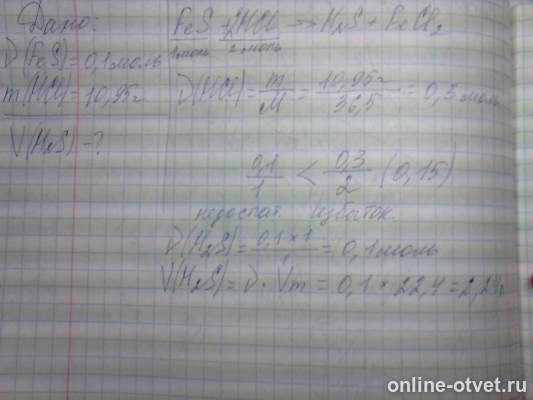 Дано:
ν(FeS) = 0,1 моль
m(HCl) = 10,95г
V(H₂S) - ?
FeS + 2HCl → H₂S + FeCl₂
1 моль 2 моль
ν(HCl) = m/M = 10,95г/36,5 = 0,3 моль
0,1/1 < 0,3/2 (0,15)
недостат. избыток
ν(H₂S) = 0,1 × 1/1 = 0,1 моль
V(H₂S) = ν · Vm = 0,1 × 22,4 = 2,24л
online-otvet.ru